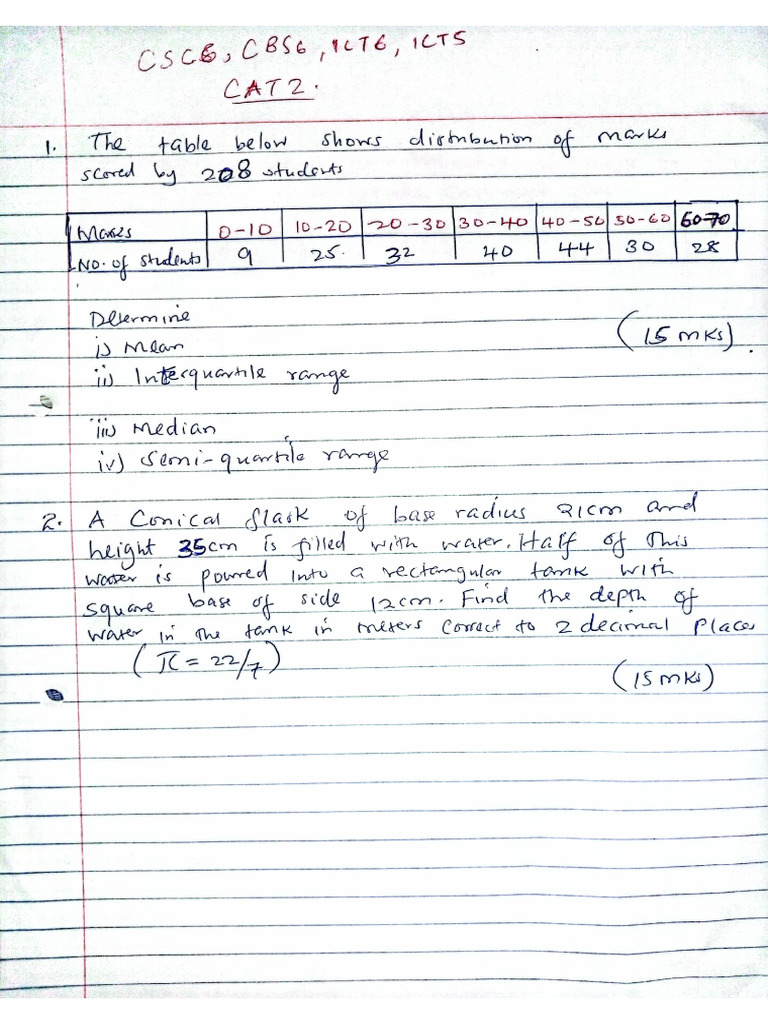 CSC6, CBS6, ICT6, ICT5
CAT 2.
1. The table below shows distribution of marks
scored by 208 students
Marks 0-10 10-20 20-30 30-40 40-50 50-60 60-70
No. of students 9 25 32 40 44 30 28
Determine
(15 mks).
i) Mean
ii) Interquartile range
iii) Median
iv) Semi-quartile range
2. A Conical flask of base radius 21cm and
height 35cm is filled with water. Half of this
water is poured into a rectangular tank with
square base of side 12cm. Find the depth of
water in the tank in meters correct to 2 decimal places
(π = 22/7)
(15 mks)